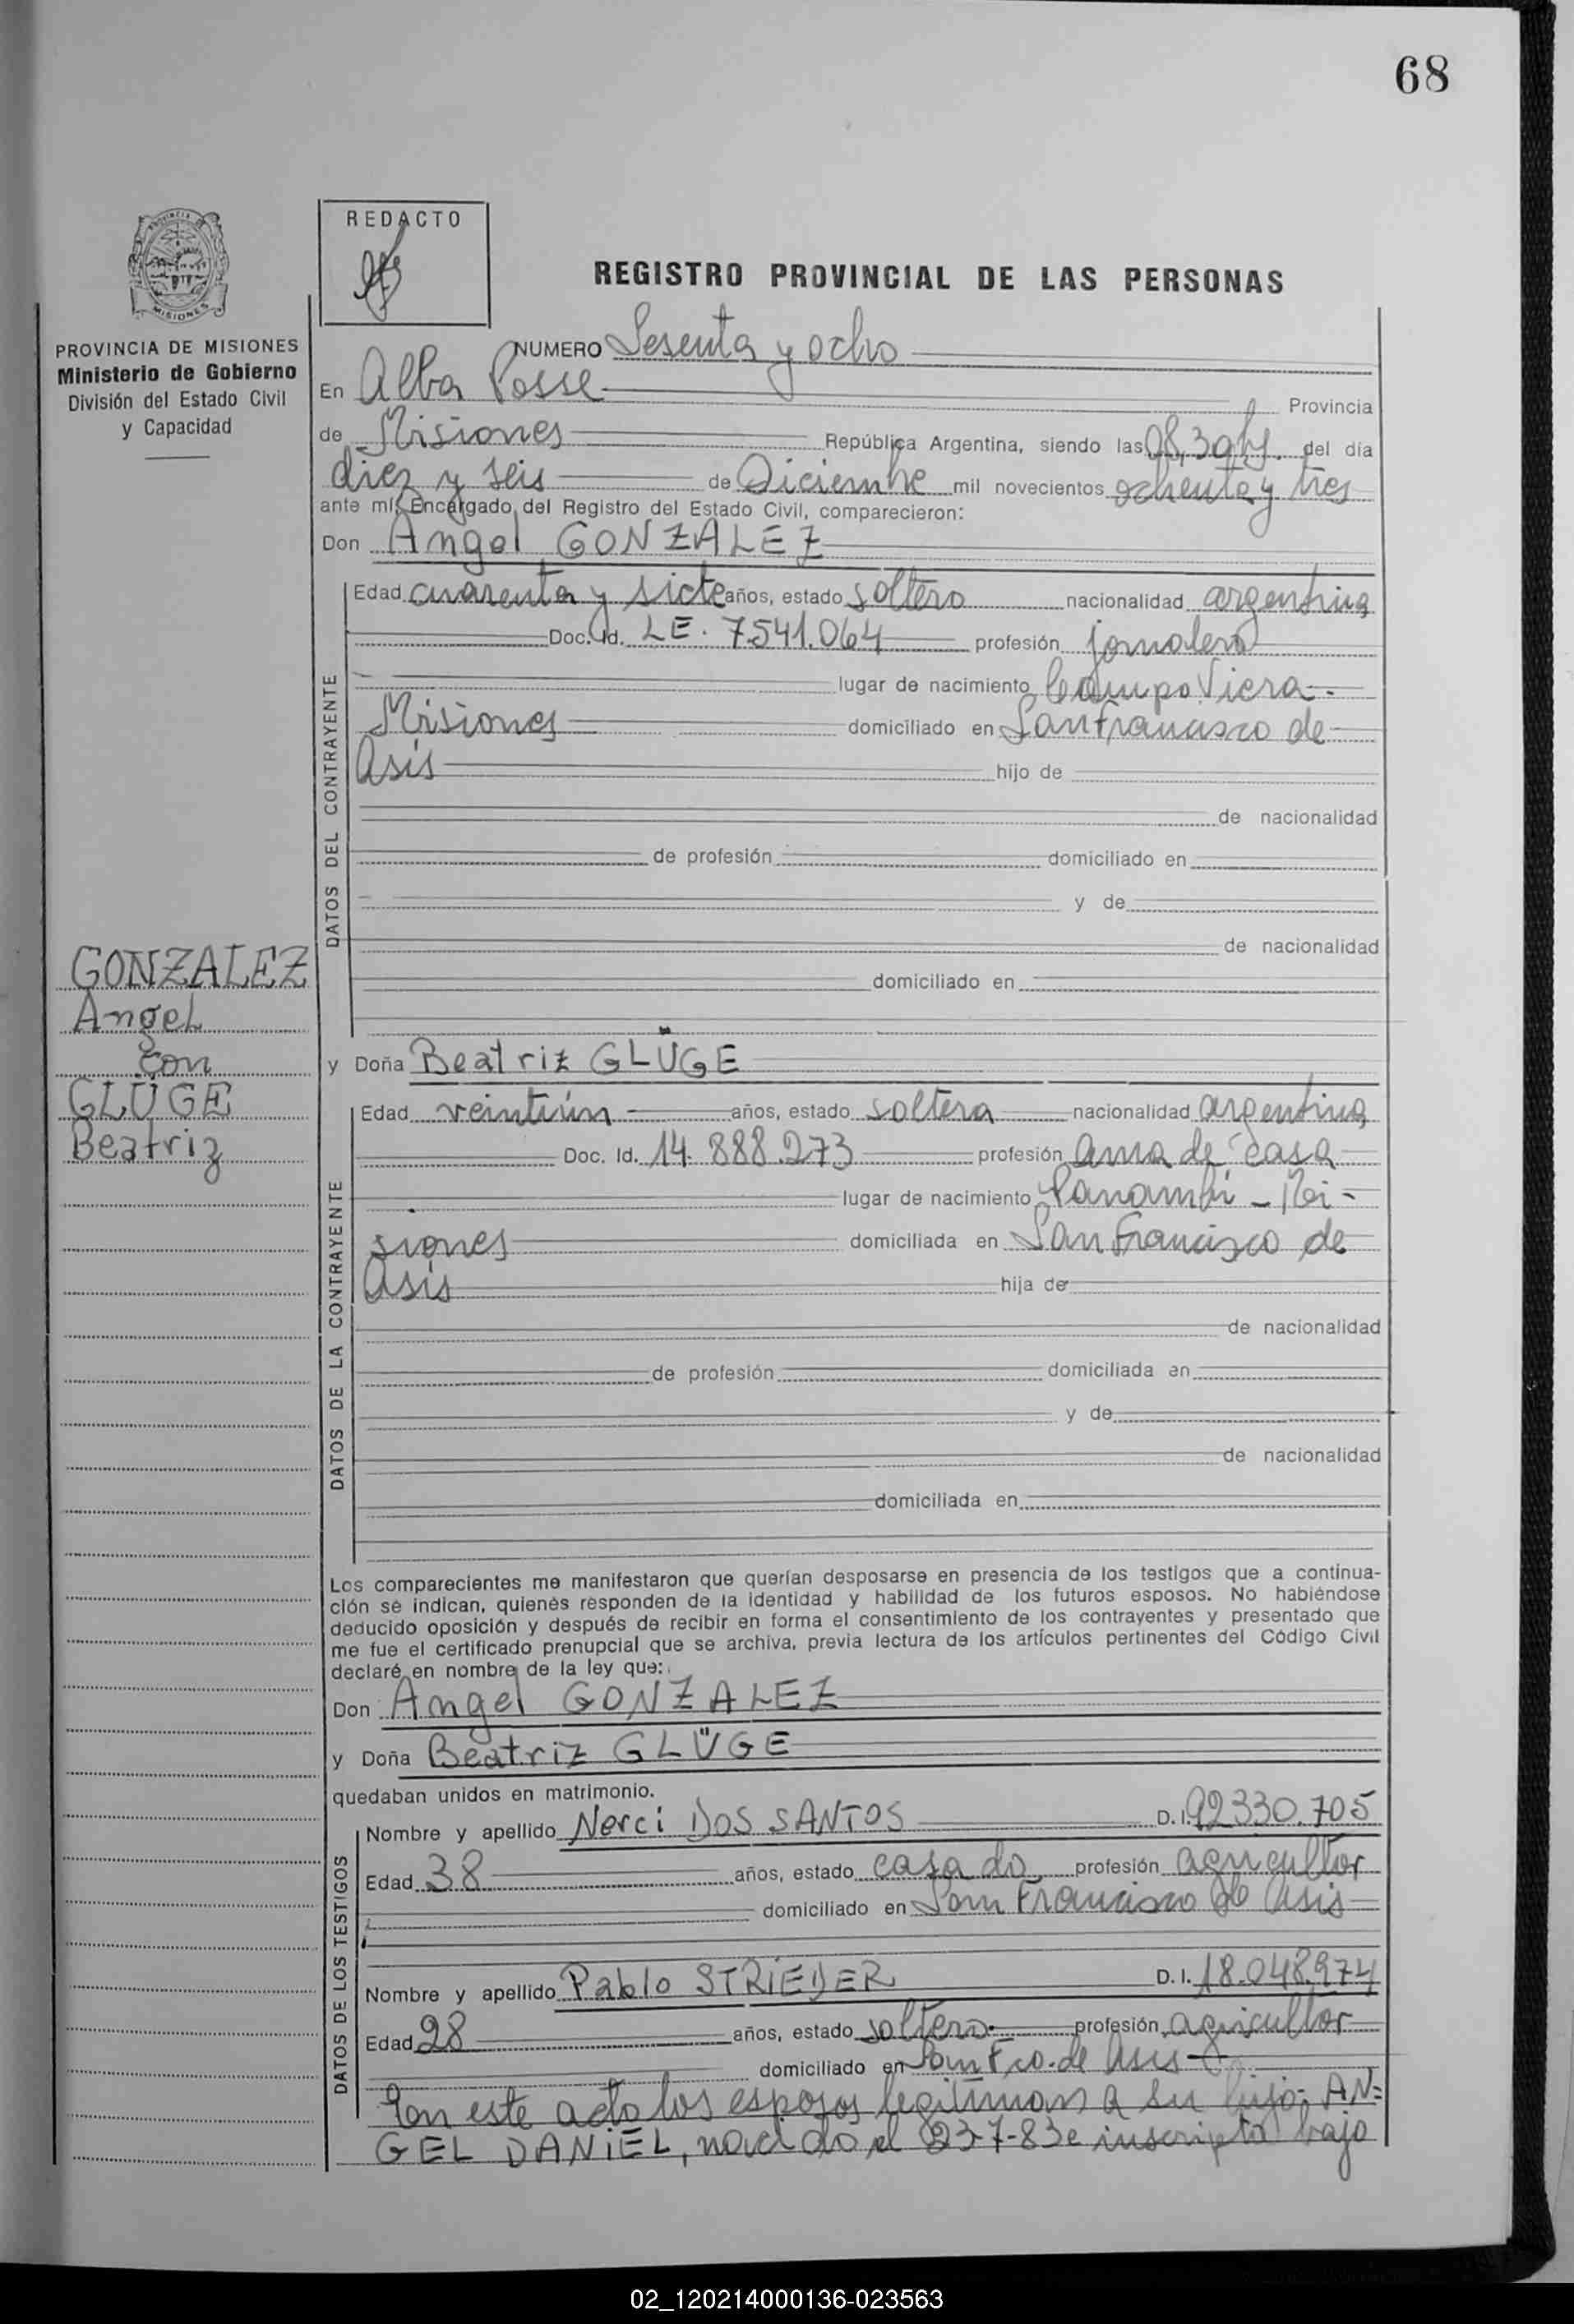 68
PROVINCIA DE
MISIONES
REDACTO
REGISTRO PROVINCIAL DE LAS PERSONAS
PROVINCIA DE MISIONES
Ministerio de Gobierno
División del Estado Civil
y Capacidad
NUMERO Sesenta y ocho
En Alba Posse Provincia
de Misiones República Argentina, siendo las 08,30 hs. del día
diez y seis de Diciembre mil novecientos ochenta y tres
ante mí, Encargado del Registro del Estado Civil, comparecieron:
Don Angel GONZALEZ
DATOS DEL CONTRAYENTE
Edad cuarenta y siete años, estado soltero nacionalidad argentina
Doc. Id. LE. 7.541.064 profesión jornalero
lugar de nacimiento Campo Viera-
Misiones domiciliado en San Francisco de
Asís hijo de
de nacionalidad
de profesión domiciliado en
y de
de nacionalidad
domiciliado en
GONZALEZ
Angel
con
GLÜGE
Beatriz
y Doña Beatriz GLÜGE
DATOS DE LA CONTRAYENTE
Edad veintiún años, estado soltera nacionalidad argentina
Doc. Id. 14.888.273 profesión ama de casa
lugar de nacimiento Panambí - Mi-
siones domiciliada en San Francisco de
Asís hija de
de nacionalidad
de profesión domiciliada en
y de
de nacionalidad
domiciliada en
Los comparecientes me manifestaron que querían desposarse en presencia de los testigos que a continua-
ción se indican, quienes responden de la identidad y habilidad de los futuros esposos. No habiéndose
deducido oposición y después de recibir en forma el consentimiento de los contrayentes y presentado que
me fue el certificado prenupcial que se archiva, previa lectura de los artículos pertinentes del Código Civil
declaré en nombre de la ley que:
Don Angel GONZALEZ
y Doña Beatriz GLÜGE
quedaban unidos en matrimonio.
DATOS DE LOS TESTIGOS
Nombre y apellido Nerci DOS SANTOS D.I. 92330.705
Edad 38 años, estado casado profesión agricultor
domiciliado en San Francisco de Asís
Nombre y apellido Pablo STRIEDER D. I. 18.048.974
Edad 28 años, estado soltero profesión agricultor
domiciliado en San Fco. de Asís
En este acto los esposos legitiman a su hijo: AN=
GEL DANIEL, nacido el 23-7-83 e inscripto bajo
02_120214000136-023563